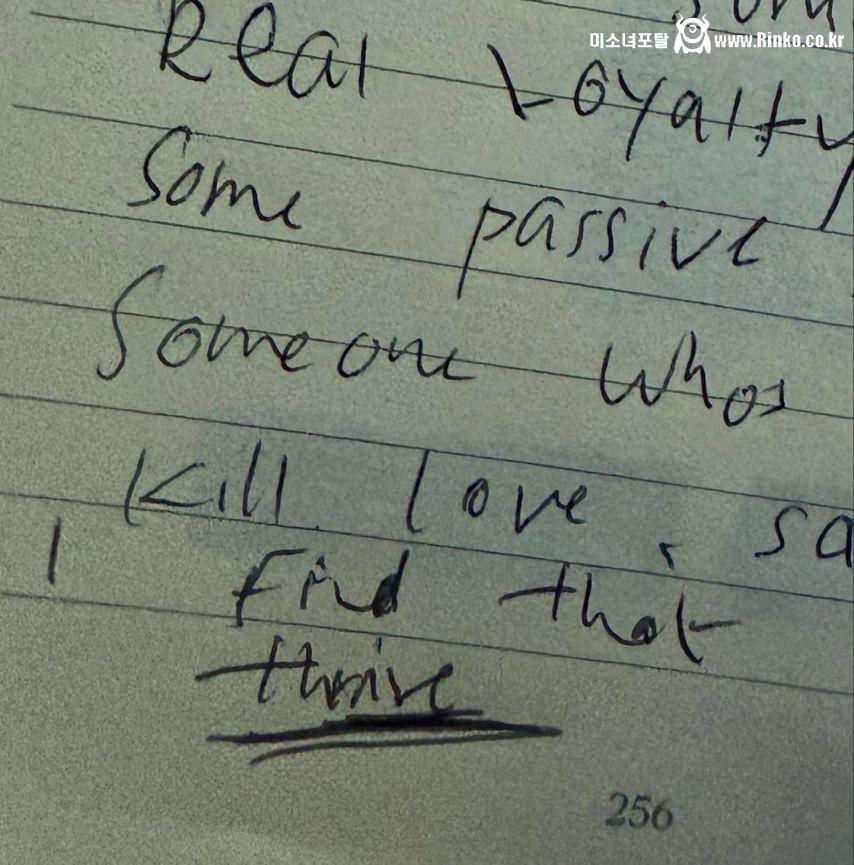 som
미소녀포탈 www.Rinko.co.kr
Real Loyalty
Some passive
Someone whos
Kill love sa
I Find that
thrive
256